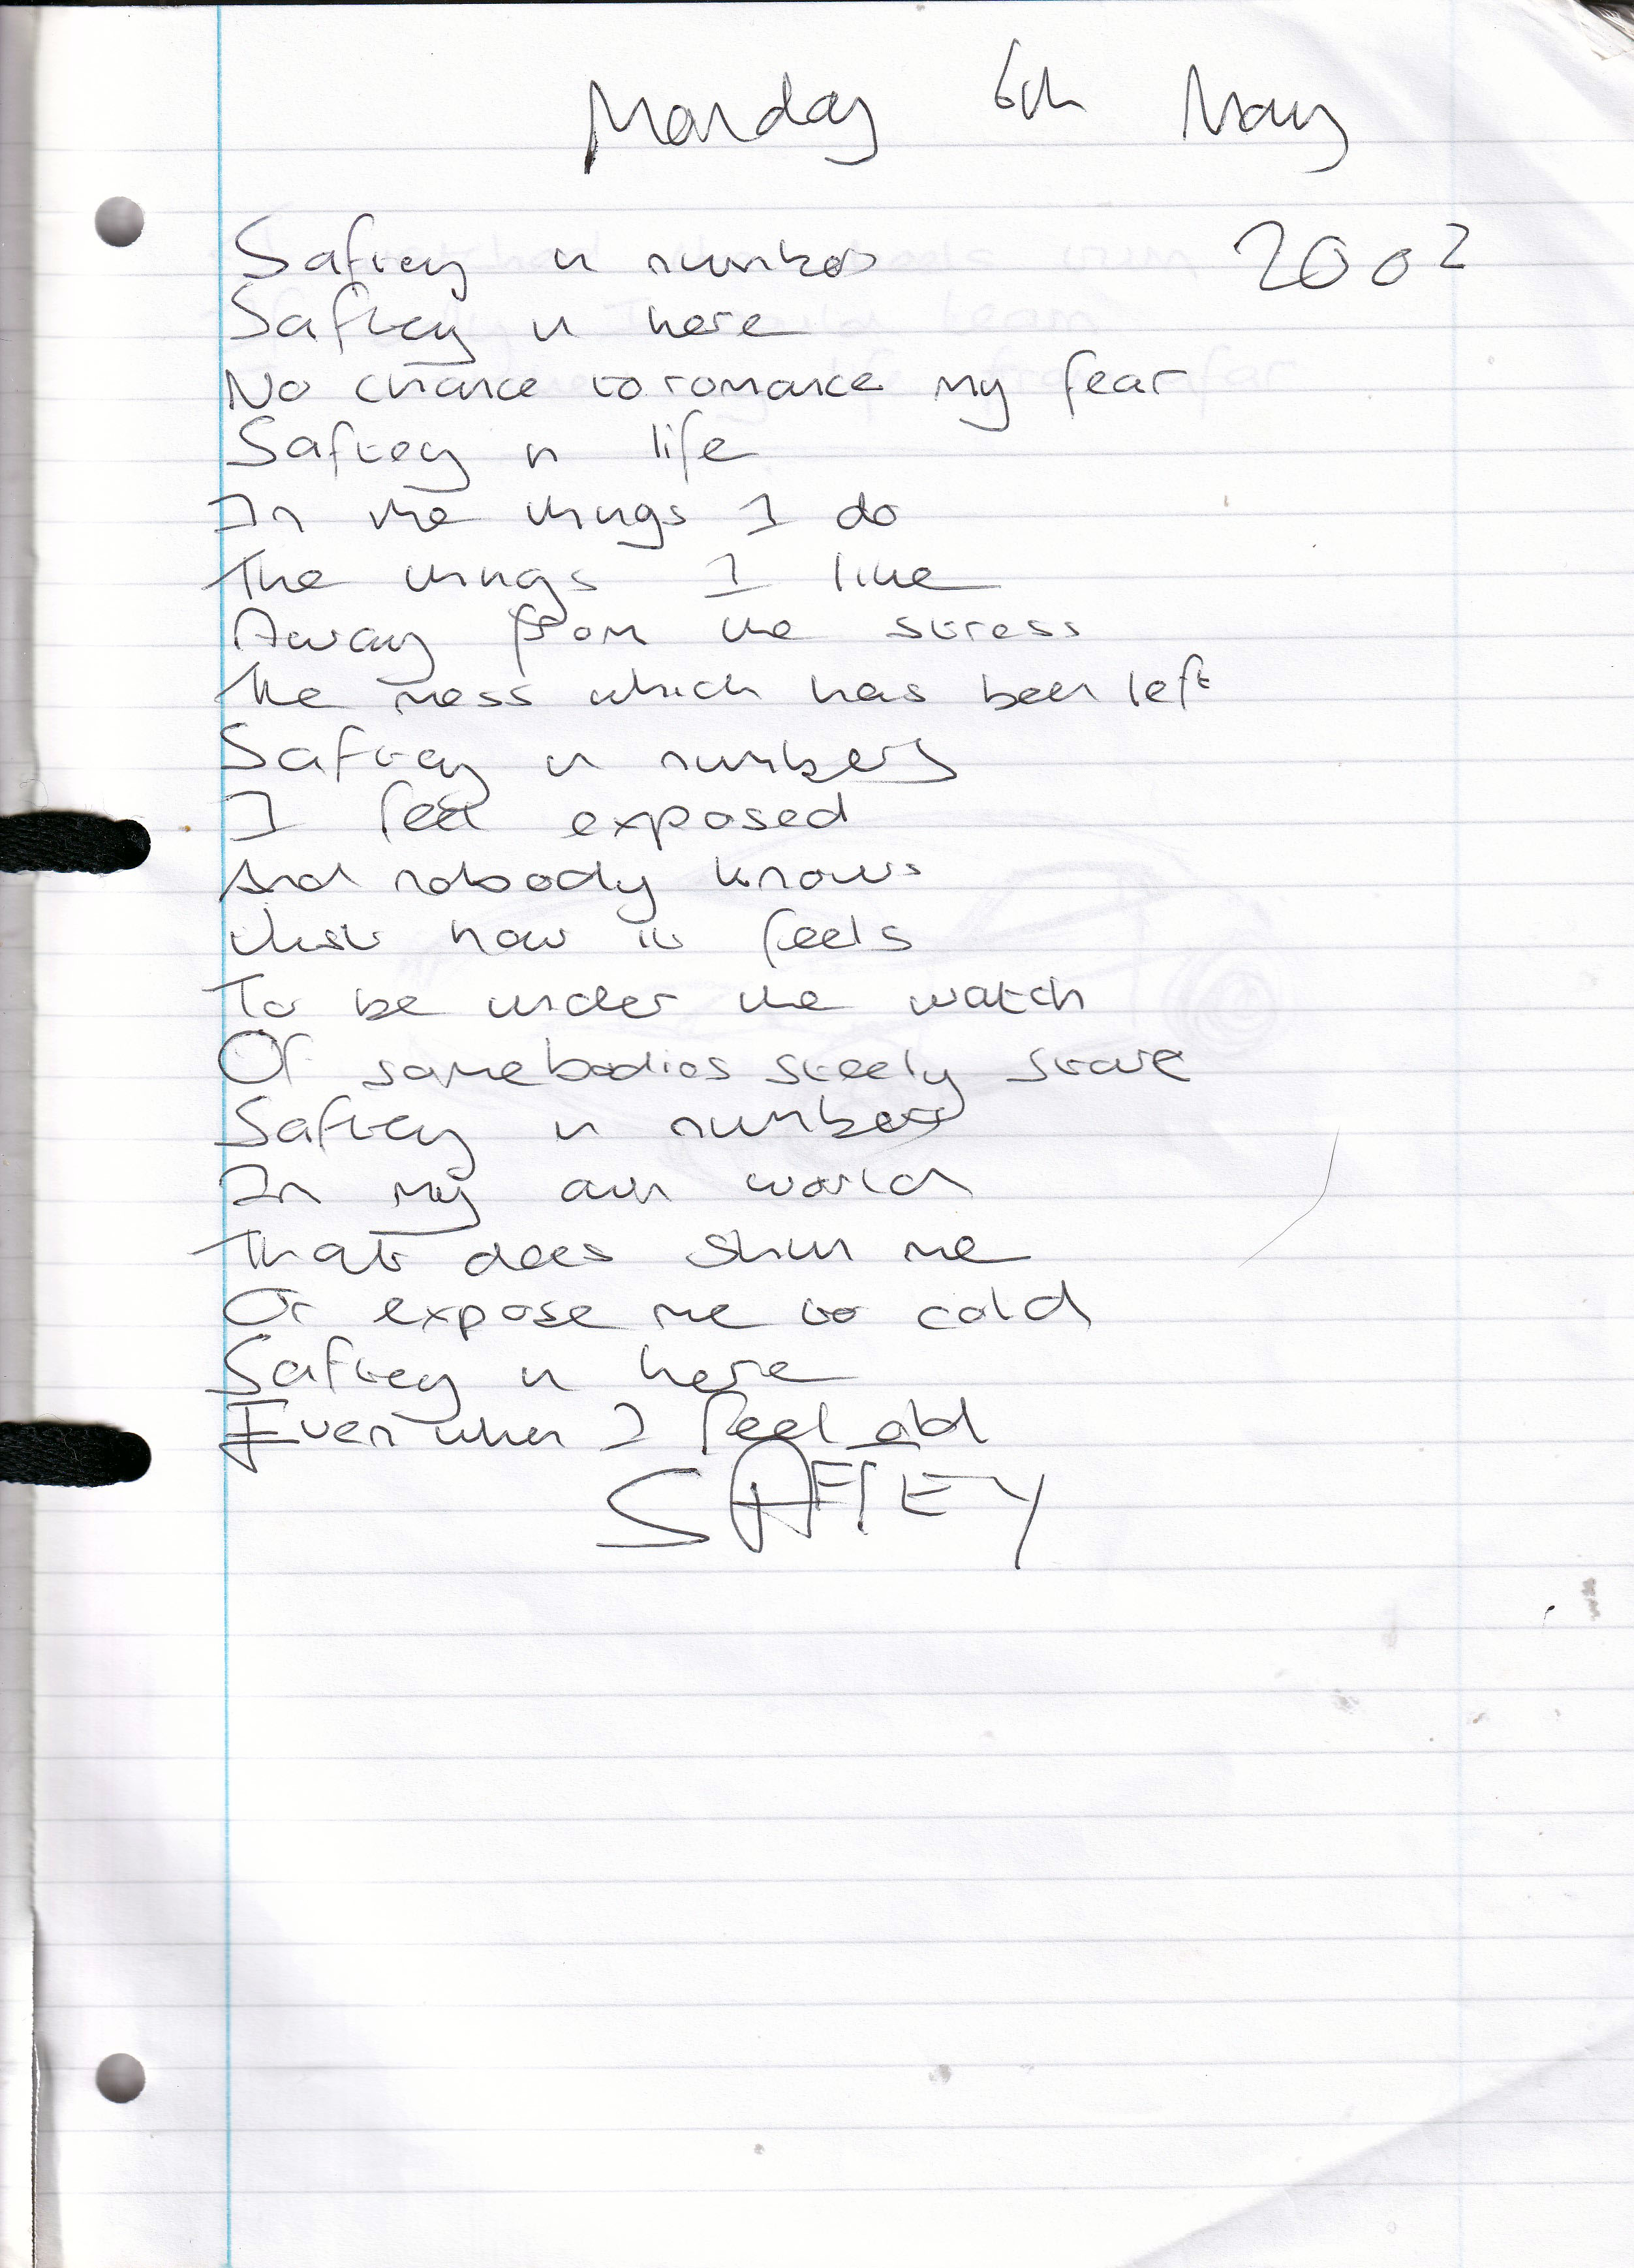 Monday 6th May
2002
Saftey in numbers
Saftey in here
No chance to romance my fear
Saftey in life
In the things I do
The things I like
Away from the stress
The mess which has been left
Saftey in numbers
I feel exposed
And nobody knows
Just how it feels
To be under the watch
Of somebodies steely stare
Saftey in numbers
In my own world
That does shun me
Or expose me to cold
Saftey in here
Even when I feel old
SAFTEY